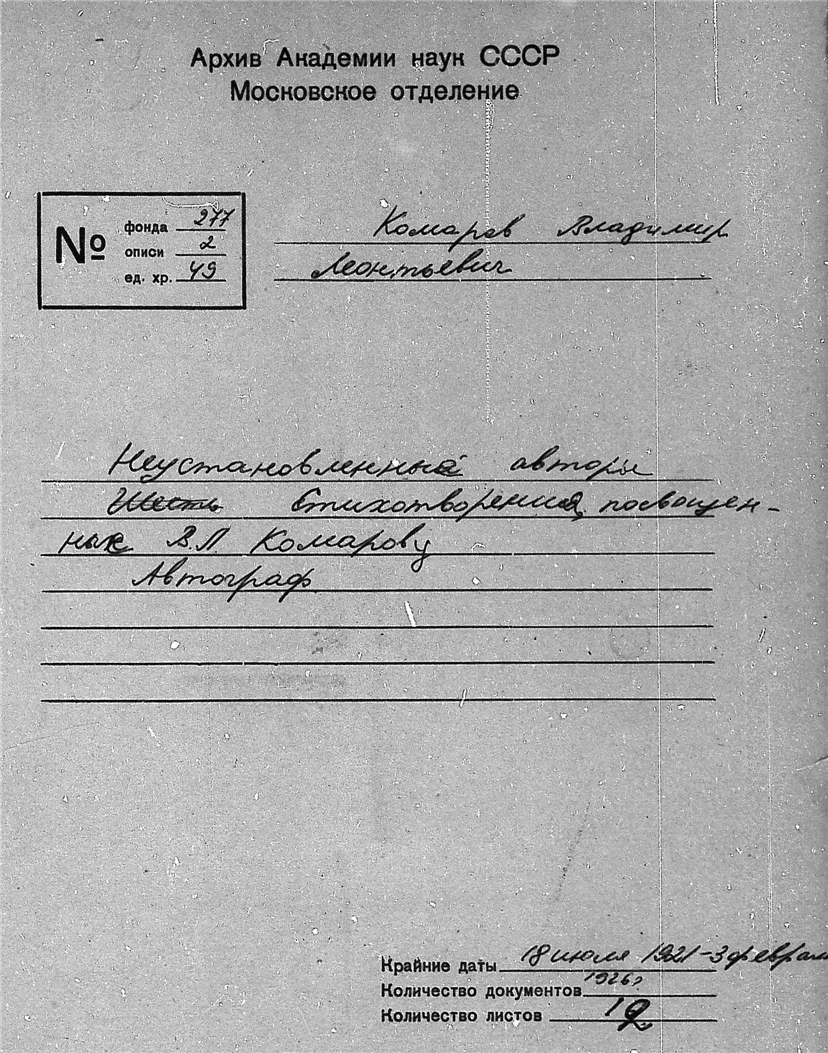 Архив Академии наук СССР
Московское отделение
№
фонда 277
описи 2
ед. хр. 49
Комаров Владимир
Леонтьевич
Неустановленные авторы
Шесть Стихотворения, посвящен-
ные В.Л. Комарову
Автограф
Крайние даты 18 июля 1921-3 феврал
1926 г.
Количество документов
Количество листов 12